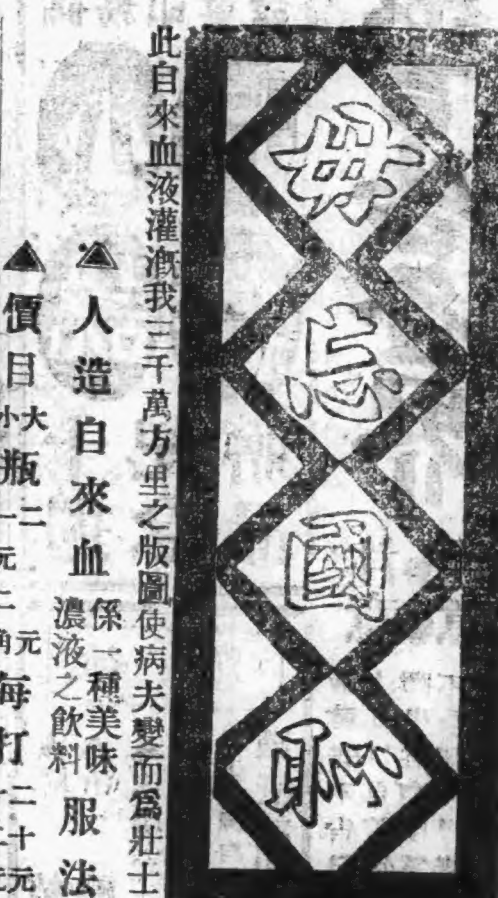 毋忘國恥
此自來血液灌漑我三千萬方里之版圖使病夫變而爲壯士
▲人造自來血
係一種美味
濃液之飲料
服法
▲價目
大
小
瓶
二元
一元二角
每打
二十元